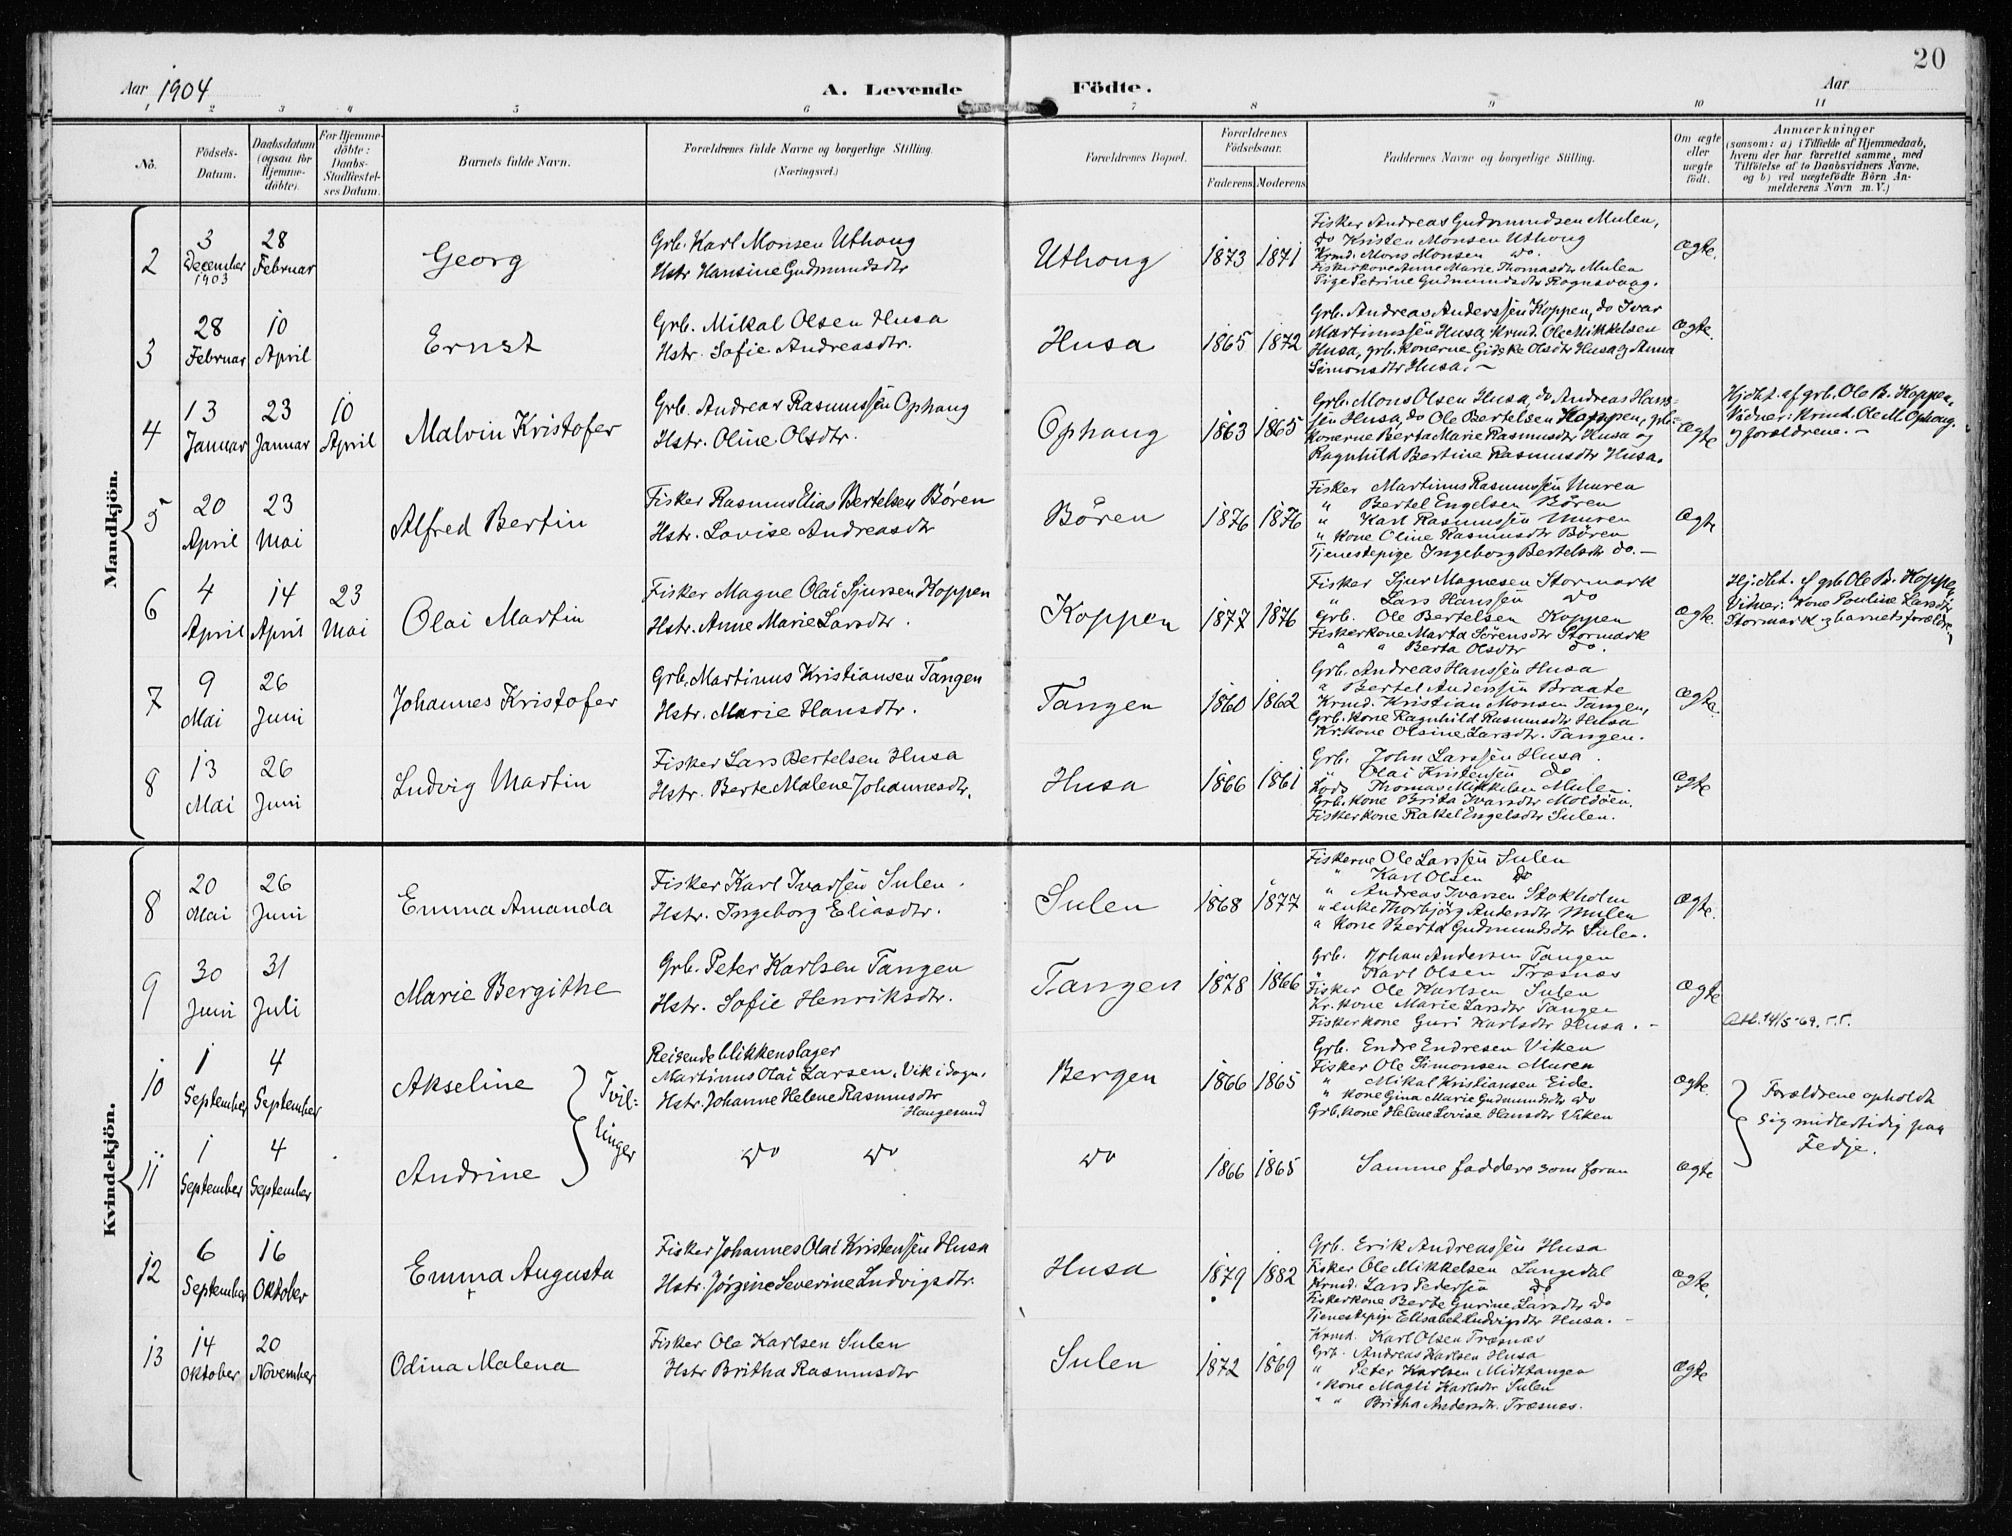 20
Aar 1904
A. Levende Födte.
Aar
1 2 3 4 5 6 7 8 9 10 11
No.
Födsels-
Datum.
Daabsdatum
(ogsaa for
Hjemme-
döbte).
For Hjemme-
döbte:
Daabs-
Stadfæstel-
ses Datum.
Barnets fulde Navn.
Forældrenes fulde Navne og borgerlige Stilling.
(Næringsvei.)
Forældrenes Bopæl.
Forældrenes
Födselsaar.
Faderens. Moderens.
Faddernes Navne og borgerlige Stilling.
Om ægte
eller
uægte
födt.
Anmærkninger
(saasom: a) i Tilfælde af Hjemmedaab,
hvem der har forrettet samme, med
Tilföielse af to Daabsvidners Navne.
og b) ved uægtefödte Börn An-
melderens Navn m. V.)
Mandkjön.
2
3
December
1903
28
Februar
Georg
Grb. Karl Monsen Uthoug
Hstr Hansine Gudmundsdtr
Uthoug
1873 1871
Fisker Andreas Gudmundsen Mulen,
do Kristen Monsen Uthoug
Krmd. Mons Monsen do.
Fiskerkone Anne Marie Thomasdtr Mulen
Pige Petrine Gudmundsdtr Rognsvaag.
Ægte.
3
28
Februar
10
April
Ernst
Grb. Mikal Olsen Husa
Hstr. Sofie Andreasdtr.
Husa
1865 1872
Grb. Andreas Anderssen Koppen, do Ivar
Martinussen Husa, Krmd. Ole Mikkelsen
Husa, grb. konerne Gidske Olsdtr Husa og Anna
Simonsdtr Husa. -
Ægte.
4
13
Januar
23
Januar
10
April
Malvin Kristofer
Grb. Andreas Rasmussen Ophaug
Hstr. Oline Olsdtr.
Ophaug
1863 1865
Grb. Mons Olsen Husa, do Andreas Hans-
sen Husa, do Ole Bertelsen Koppen, grb.
Konerne Berta Marie Rasmusdtr Husa og
Ragnhild Bertine Rasmusdtr Husa.
Ægte
Hjdbt. af grb. Ole B. Koppen,
Vidner: Krmd. Ole M. Ophaug.
og forældrene. -
5
20
April
23
Mai
Alfred Bertin
Fisker Rasmus Elias Bertelsen Bören
Hstr. Lovise Andreasdtr
Bören
1876 1876
Fisker Martinus Rasmussen Muren
" Bertel Engelsen Bören
" Karl Rasmussen Muren
" Kone Oline Rasmusdtr Bören
Tjenestepige Ingeborg Bertelsdtr do. -
Ægte
6
4
April
14
April
23
Mai
Olai Martin
Fisker Magne Olai Sjursen Koppen
Hstr. Anne Marie Larsdtr.
Koppen
1877 1876
Fisker Sjur Magnesen Stormark
" Lars Hanssen do
Grb. Ole Bertelsen Koppen
Fiskerkone Marta Sörensdtr Stormark
" " Berta Olsdtr do.
Ægte.
Hj.dbt. af grb Ole B. Koppen,
Vidner: Kone Pauline Larsdtr
Stormark og barnets forældre
7
9
Mai
26
Juni
Johannes Kristofer
Grb. Martinus Kristiansen Tangen
Hstr. Marie Hansdtr.
Tangen
1860 1862
Grb. Andreas Hanssen Husa
" Bertel Anderssen Braate
Krmd. Kristian Monsen Tangen,
Grb. kone Ragnhild Rasmusdtr Husa
Kr. kone Olsine Larsdtr. Tangen.
Ægte.
8
13
Mai
26
Juni
Ludvig Martin
Fisker Lars Bertelsen Husa
Hstr. Berte Malene Johannesdtr.
Husa
1866 1861
Grb. John Larssen Husa.
" Olai Kristensen do
Lods Thomas Mikkelsen Mulen.
Grb. kone Brita Ivarsdtr Moldöen.
Fiskerkone Rakel Engelsdtr Sulen.
Ægte
Kvindekjön.
8
20
Mai
26
Juni
Emma Amanda
Fisker Karl Ivarsen Sulen.
Hstr. Ingeborg Eliasdtr.
Sulen
1868 1877
Fiskerne Ole Larssen Sulen
" Karl Olsen do
" Andreas Ivarsen Stokholm
" enke Thorbjörg Andersdtr Mulen
" Kone Berta Gudmundsdtr Sulen.
Ægte.
9
30
Juni
31
Juli
Marie Bergithe
Grb. Peter Karlsen Tangen
Hstr. Sofie Henriksdtr.
Tangen
1878 1866
Grb. Johan Andersen Tangen
" Karl Olsen Træsnæs
Fisker Ole Karlsen Sulen
Kr. kone Marie Larsdtr Tangen
Fiskerkone Guri Karlsdtr Husa. -
Ægte
Att. 14/5-69.
10
1
September
4
September
Akseline
Tvil-
linger
Reisende blikkenslager
Martinus Olai Larsen, Vik i Sogn.
Hstr. Johanne Helene Rasmusdtr
Haugesund
Bergen
1866 1865
Grb. Endre Endresen Viken
Fisker Ole Simonsen Muren
" Mikal Kristiansen Eide.
" Kone Gina Marie Gudmundsdtr do
Grb. kone Helene Lovise Hansdtr Viken
Ægte.
Forældrene opholdt
sig midlertidig paa
Fedje.
11
1
September
4
September
Andrine
do do
do
1866 1865
Samme faddere som foran
Ægte
12
6
September
16
Oktober
Emma Augusta
Fisker Johannes Olai Kristensen Husa
Hstr. Jörgine Severine Ludvigsdtr.
Husa
1879 1882
Grb. Erik Andreassen Husa
Fisker Ole Mikkelsen Langedal
Krmd. Lars Pedersen do
Fiskerkone Berte Gurine Larsdtr do
Tjenestepige Elisabet Ludvigsdtr Husa. -
Ægte.
13
14
Oktober
20
November
Odina Malena
Fisker Ole Karlsen Sulen
Hstr Britha Rasmusdtr
Sulen
1872 1869
Krmd. Karl Olsen Træsnæs
Grb. Andreas Karlsen Husa
" Peter Karlsen Midttangen
" Kone Magli Karlsdtr Sulen
" " Britha Andersdtr. Træsnæs.
Ægte